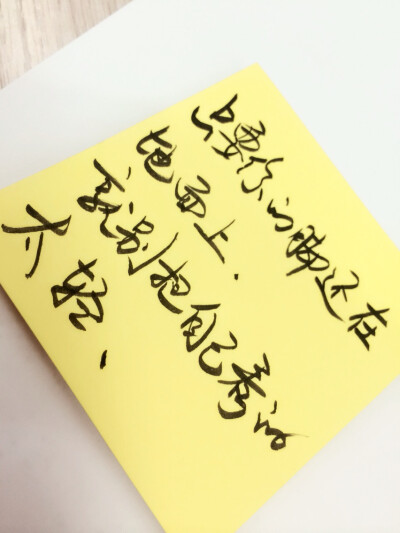 只要你的脚还在
地面上.
就别把自己看的
太轻、